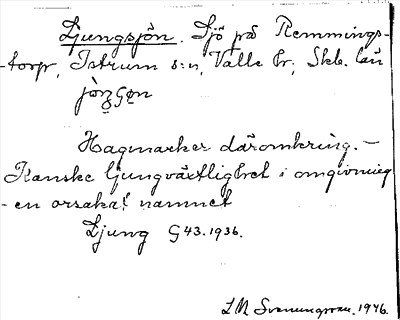 Ljungsjön. Sjö på Remmings-
-torp, Istrum s:n, Valle hr, Skb. län

Hagmarker däromkring. –
Kanske ljungväxtlighet i omgivning
-en orsakat namnet
Ljung G 43. 1936.
L M Svenungsson. 1946.